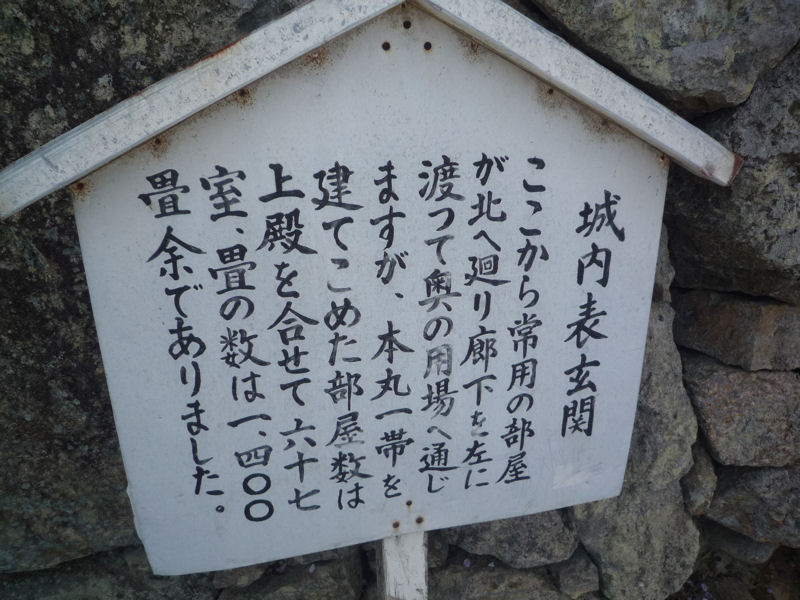 城内表玄関
ここから常用の部屋
が北へ廻り廊下を左に
渡って奥の用場へ通じ
ますが、本丸一帯を
建てこめた部屋数は
上殿を合せて六十七
室、畳の数は一、四〇〇
畳余でありました。